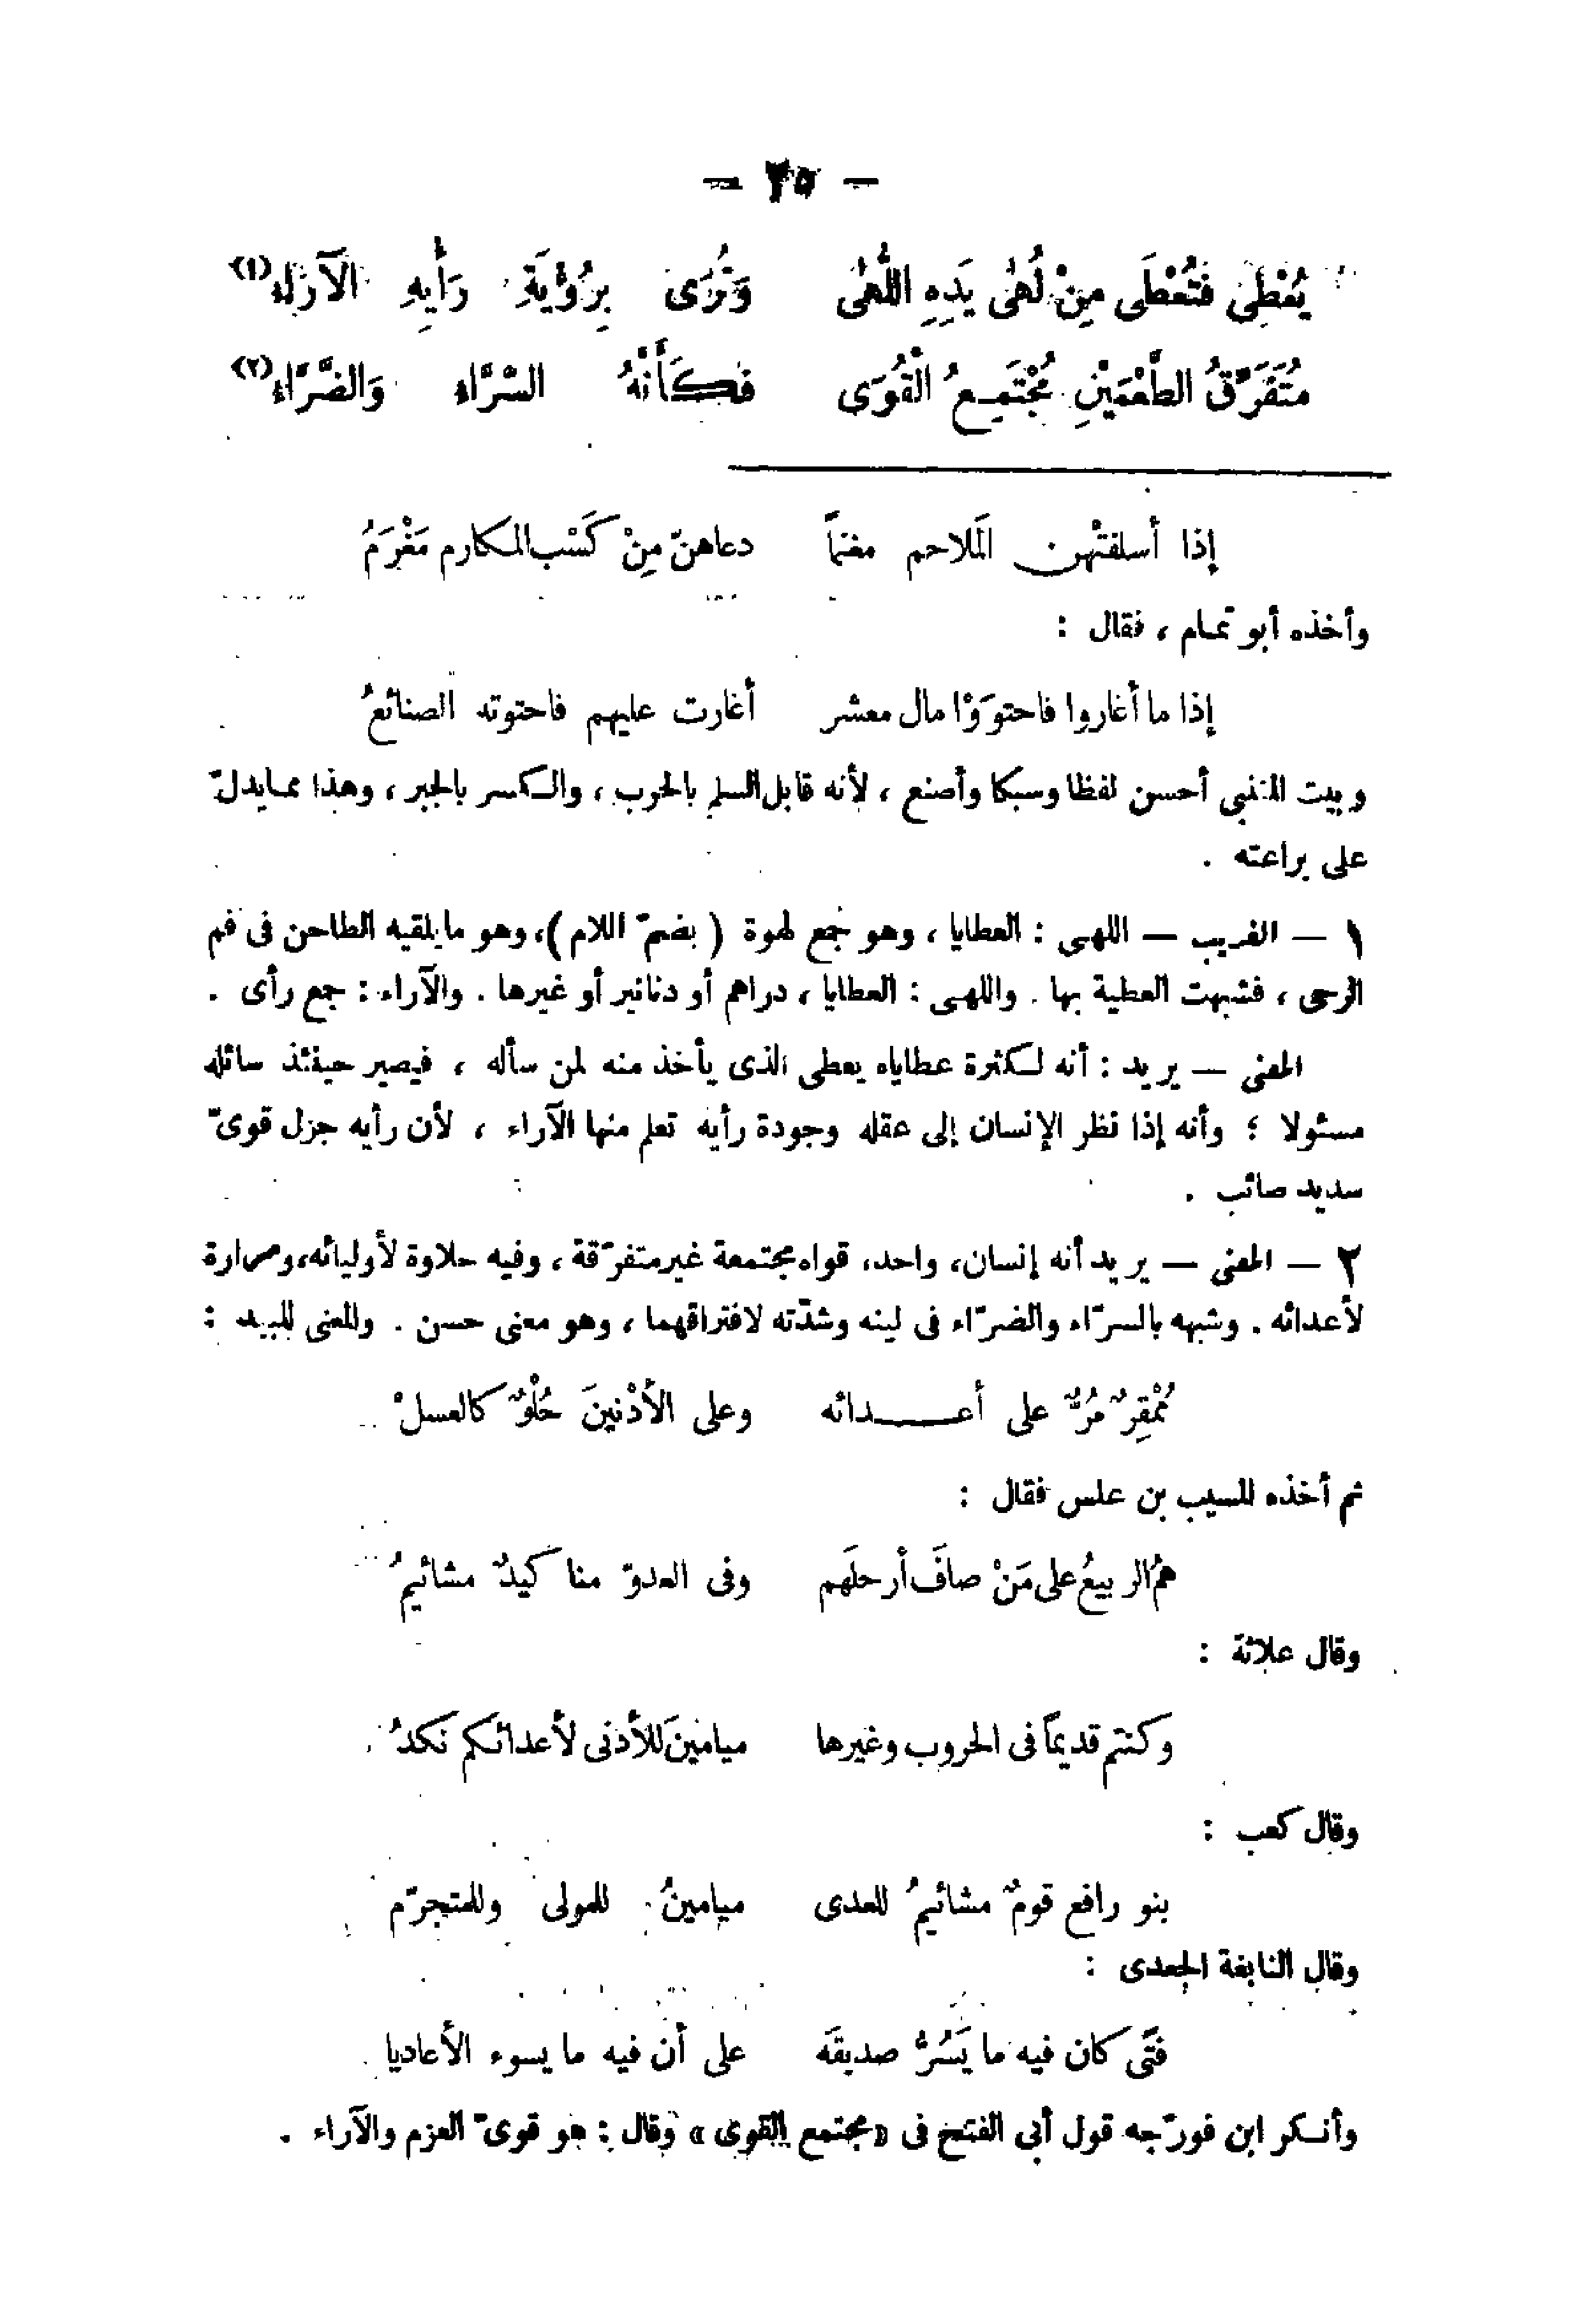 — ٢٥ —
يُعْطِى فَتُعْطَى مِنْ لُهَى يَدِهِ اللُّهَى وَتُرَى بِرُؤْيَةِ رَأْيِهِ الْآرَاءِ (١)
مُتَفَرِّقُ الطَّعْمَيْنِ مُجْتَمِعُ الْقُوَى فَكَأَنَّهُ السَّرَّاءُ وَالضَّرَّاءُ (٢)
إذا أسلفتْهن المَلاحم مغنماً دعاهنّ مِنْ كَسْب المكارم مَغْرَمُ
وأخذه أبو تمام ، فقال :
إذا ما أغاروا فاحتوَوْا مال معشر أغارت عليهم فاحتوته الصنائعُ
وبيت المتنبى أحسن لفظا وسبكا وأصنع ، لأنه قابل السلم بالحرب ، والكسر بالجبر ، وهذا مما يدلّ
على براعته .
١ — الغريب — اللهى : العطايا ، وهو جمع لهوة ( بضمّ اللام )، وهو ما يلقيه الطاحن فى فم
الرحى ، فشبهت العطية بها . واللهى : العطايا ، دراهم أو دنانير أو غيرها . والآراء : جمع رأى .
المعنى — يريد : أنه لكثرة عطاياه يعطى الذى يأخذ منه لمن سأله ، فيصير حينئذ سائله
مسئولا ؛ وأنه إذا نظر الإنسان إلى عقله وجودة رأيه تعلم منها الآراء ، لأن رأيه جزل قوىّ
سديد صائب .
٢ — المعنى — يريد أنه إنسان، واحد، قواه مجتمعة غير متفرّقة ، وفيه حلاوة لأوليائه، ومرارة
لأعدائه . وشبهه بالسرّاء والضرّاء فى لينه وشدّته لافتراقهما ، وهو معنى حسن . والمعنى للبيد :
مُمْقِرٌ مُرٌّ على أعـــدائه وعلى الأدْنينَ حُلْوٌ كالعسلْ
ثم أخذه المسيب بن علس فقال :
همُ الربيعُ على مَنْ صافَ أرحلَهم وفى العدوّ مناكيدٌ مشائيمُ
وقال علاثة :
وكنتم قديماً فى الحروب وغيرها ميامينَ للأدنى لأعدائكم نكدُ
وقال كعب :
بنو رافع قومٌ مشائيمُ للعدى ميامينُ للمولى وللمتجرّم
وقال النابغة الجعدى :
فتًى كان فيه ما يَسُرُّ صديقَه على أن فيه ما يسوء الأعاديا
وأنكر ابن فورّجه قول أبى الفتح فى «مجتمع القوى» وقال : هو قوىّ العزم والآراء .